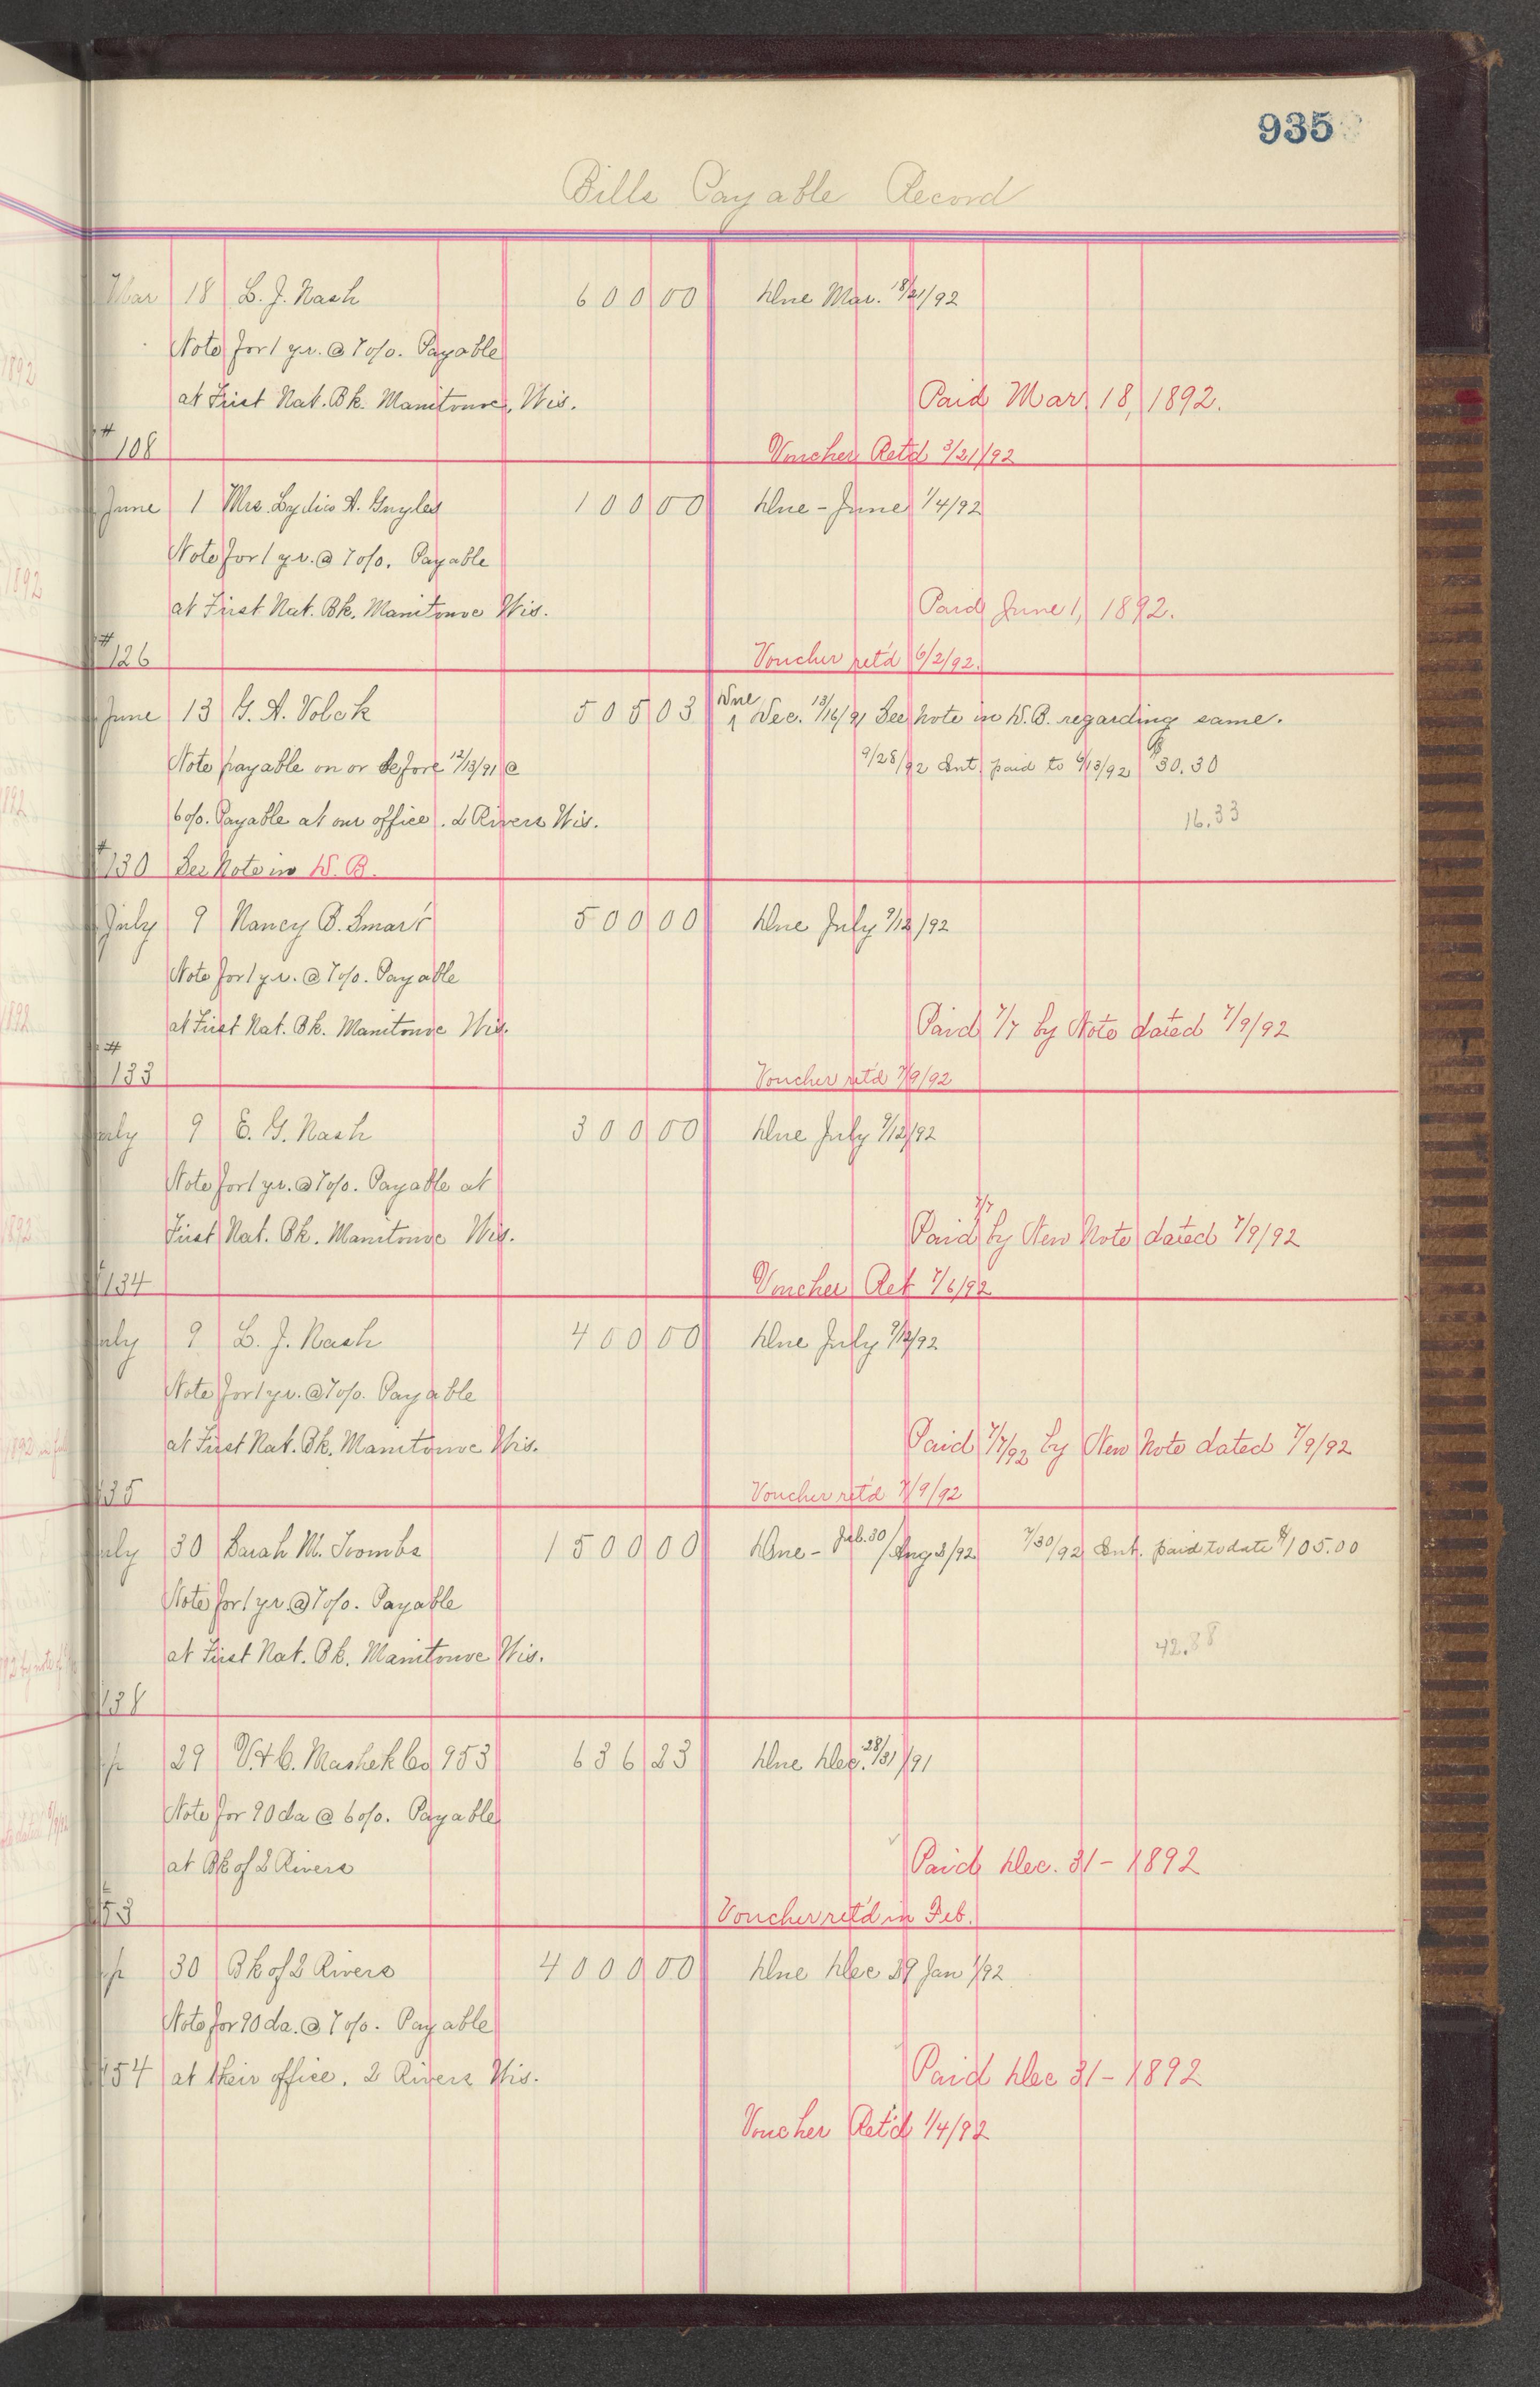 935
Bills Payable Record
Mar 18 L. J. Nash 600 00 Due Mar. 18/21/92
Note for 1 yr. @ 7o/o. Payable
at First Nat. Bk. Manitowoc, Wis. Paid Mar 18, 1892.
# 108 Voucher Retd 3/21/92
June 1 Mrs. Lydia A. Guyles 100 00 Due - June 1/4/92
Note for 1 yr. @ 7o/o. Payable
at First Nat. Bk. Manitowoc Wis. Paid June 1, 1892.
# 126 Voucher ret'd 6/2/92.
June 13 G. A. Volck 505 03 Due Dec. 13/16/91 See Note in D. B. regarding same.
Note payable on or before 12/13/91 @ 9/28/92 Int. paid to 6/13/92 $30.30
6o/o. Payable at our office. 2 Rivers Wis. 16.33
# 130 See Note in D. B.
July 9 Nancy B. Smart 500 00 Due July 9/12/92
Note for 1 yr. @ 7o/o. Payable
at First Nat. Bk. Manitowoc Wis. Paid 7/7 by Note dated 7/9/92
# 133 Voucher ret'd 7/9/92
July 9 E. G. Nash 300 00 Due July 9/12/92
Note for 1 yr. @ 7o/o. Payable at
First Nat. Bk. Manitowoc Wis. Paid 7/7 by New Note dated 7/9/92
134 Voucher Ret 7/6/92
July 9 L. J. Nash 400 00 Due July 9/12/92
Note for 1 yr. @ 7o/o. Payable
at First Nat. Bk. Manitowoc Wis. Paid 7/7/92 by New Note dated 7/9/92
135 Voucher ret'd 7/9/92
July 30 Sarah M. Toombs 1500 00 Due - Jul. 30/Aug 2/92 7/30/92 Int. paid to date $105.00
Note for 1 yr. @ 7o/o. Payable
at First Nat. Bk. Manitowoc Wis. 42.88
138
29 V. & C. Mashek Co 953 636 23 Due Dec. 28/31/91
Note for 90 da @ 6o/o. Payable
at Bk of 2 Rivers Paid Dec. 31 - 1892
153 Voucher ret'd in Feb.
30 Bk of 2 Rivers 4000 00 Due Dec 29 Jan 1/92
Note for 90 da. @ 7o/o. Payable
154 at their office, 2 Rivers Wis. Paid Dec 31 - 1892
Voucher Ret'd 1/4/92